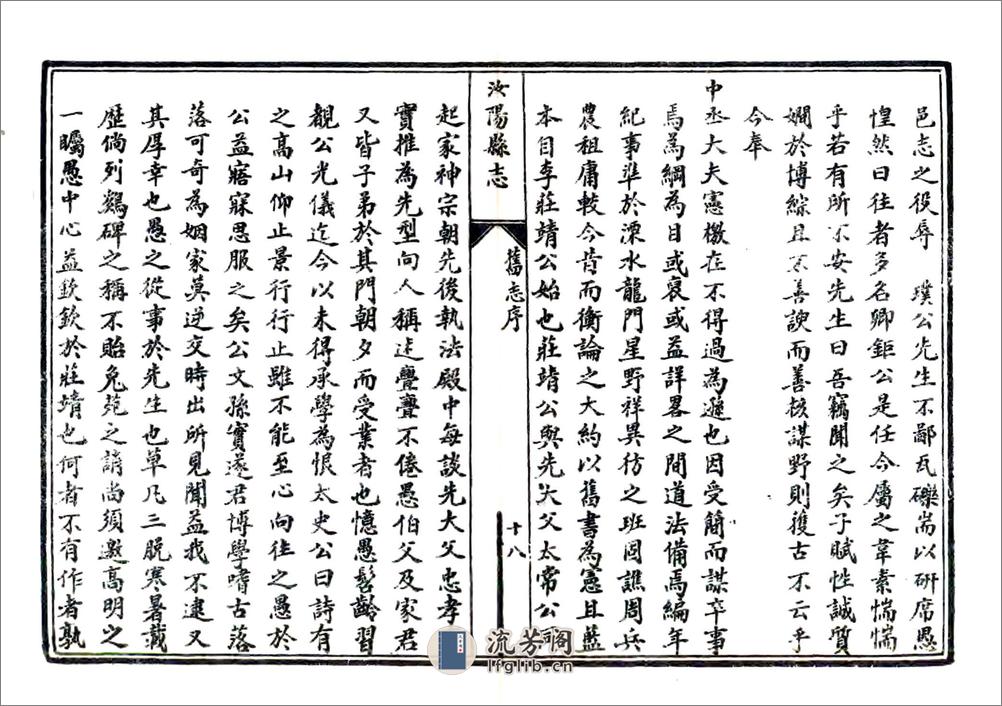 邑志之役辱　璞公先生不鄙瓦礫耑以研席愚
惶然曰往者多名卿鉅公是任今屬之韋素惴惴
乎若有所不安先生曰吾竊聞之矣子賦性誠質
嫻於博綜且不善諛而善核謀野則獲古不云乎
今奉
中丞大夫憲檄在不得過為遜也因受簡而謀卒事
焉為綱為目或裒或益詳畧之間道法備焉編年
紀事準於溧水龍門星野祥異彷之班固譙周兵
農租庸較今昔而衡論之大約以舊書為憲且藍
本目李莊靖公始也莊靖公與先大父太常公同
汝陽縣志
舊志序
十八
起家神宗朝先後執法殿中每談先大父忠孝
實推為先型向人稱述亹亹不倦愚伯父及家君
又皆子弟於其門朝夕而受業者也憶愚髫齡習
觀公光儀迄今以未得承學為恨太史公曰詩有
之高山仰止景行行止雖不能至心向往之愚於
公益寤寐思服之矣公文孫實遂君博學嗜古落
落可奇為姻家莫逆交時出所見聞益我不逮又
其厚幸也愚之從事於先生也草凡三脫寒暑載
歷倘列鷄碑之稱不貽兔苑之誚尚須邀高明之
一矚愚中心益欽欽於莊靖也何者不有作者孰
流芳阁
lfglib.cn